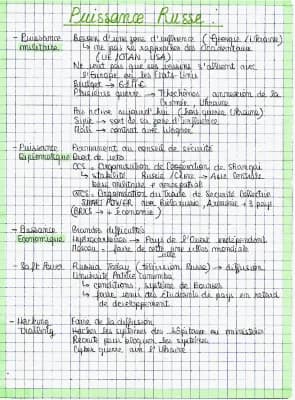 Puissance Russe :
- Puissance militaire
Besoin d'une zone d'influence (Géorgie/Ukraine)
↳ ne pas se rapprocher des Occidentaux
(UE/OTAN, USA)
Ne veut pas que ses voisins s'allient avec
l'Europe ou les Etats-Unis
Budget →
Plusieurs guerre → Tchétchènes, annexion de la
Crimée, Ukraine
Syrie → sort de sa zone d'influence
Mali → contrat avec Wagner
- Puissance diplomatique
Permanent au conseil de sécurité
Droit de veto
OCS : Organisation de Coopération de Shanghai
↳ stabilité Russie/Chine → Asie Centrale
but militaire +
OTSC : Organisation du Traité de Sécurité Collective
avec Biélorussie, Arménie + 3 pays
(BRICS → + économie)
- Puissance Economique
Grandes difficultés
Hydrocarbures → Pays de l'Ouest indépendant
Moscou : faire de cette ville une ville mondiale
- Soft Power
Russia Today (Télévision Russe) → diffusion
Université Patrice Lumumba
↳ conditions, système de Bourses
↳ faire venir des étudiants de pays en retard
de développement
- Hacking
Faire de la diffusion
Hacker les systèmes des hôpitaux ou ministères
Recrute pour bloquer les systèmes
Cyber guerre avec l'Ukraine